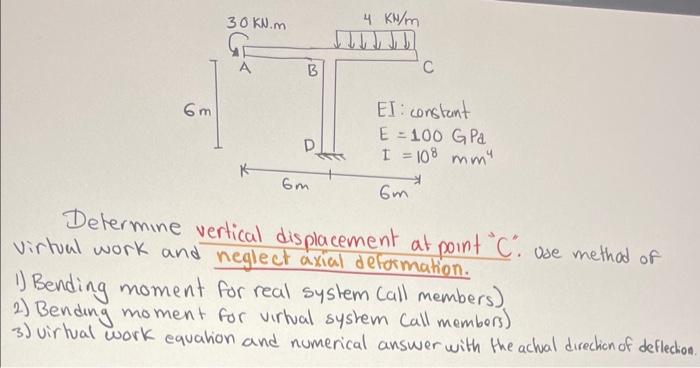 30 KN.m
4 KN/m
A
B
C
6m
D
EI : constant
E = 100 GPa
I = 10⁸ mm⁴
6m
6m
Determine vertical displacement at point "C". Use method of
virtual work and neglect axial deformation.
1) Bending moment for real system (all members)
2) Bending moment for virtual system (all members)
3) virtual work equation and numerical answer with the actual direction of deflection.